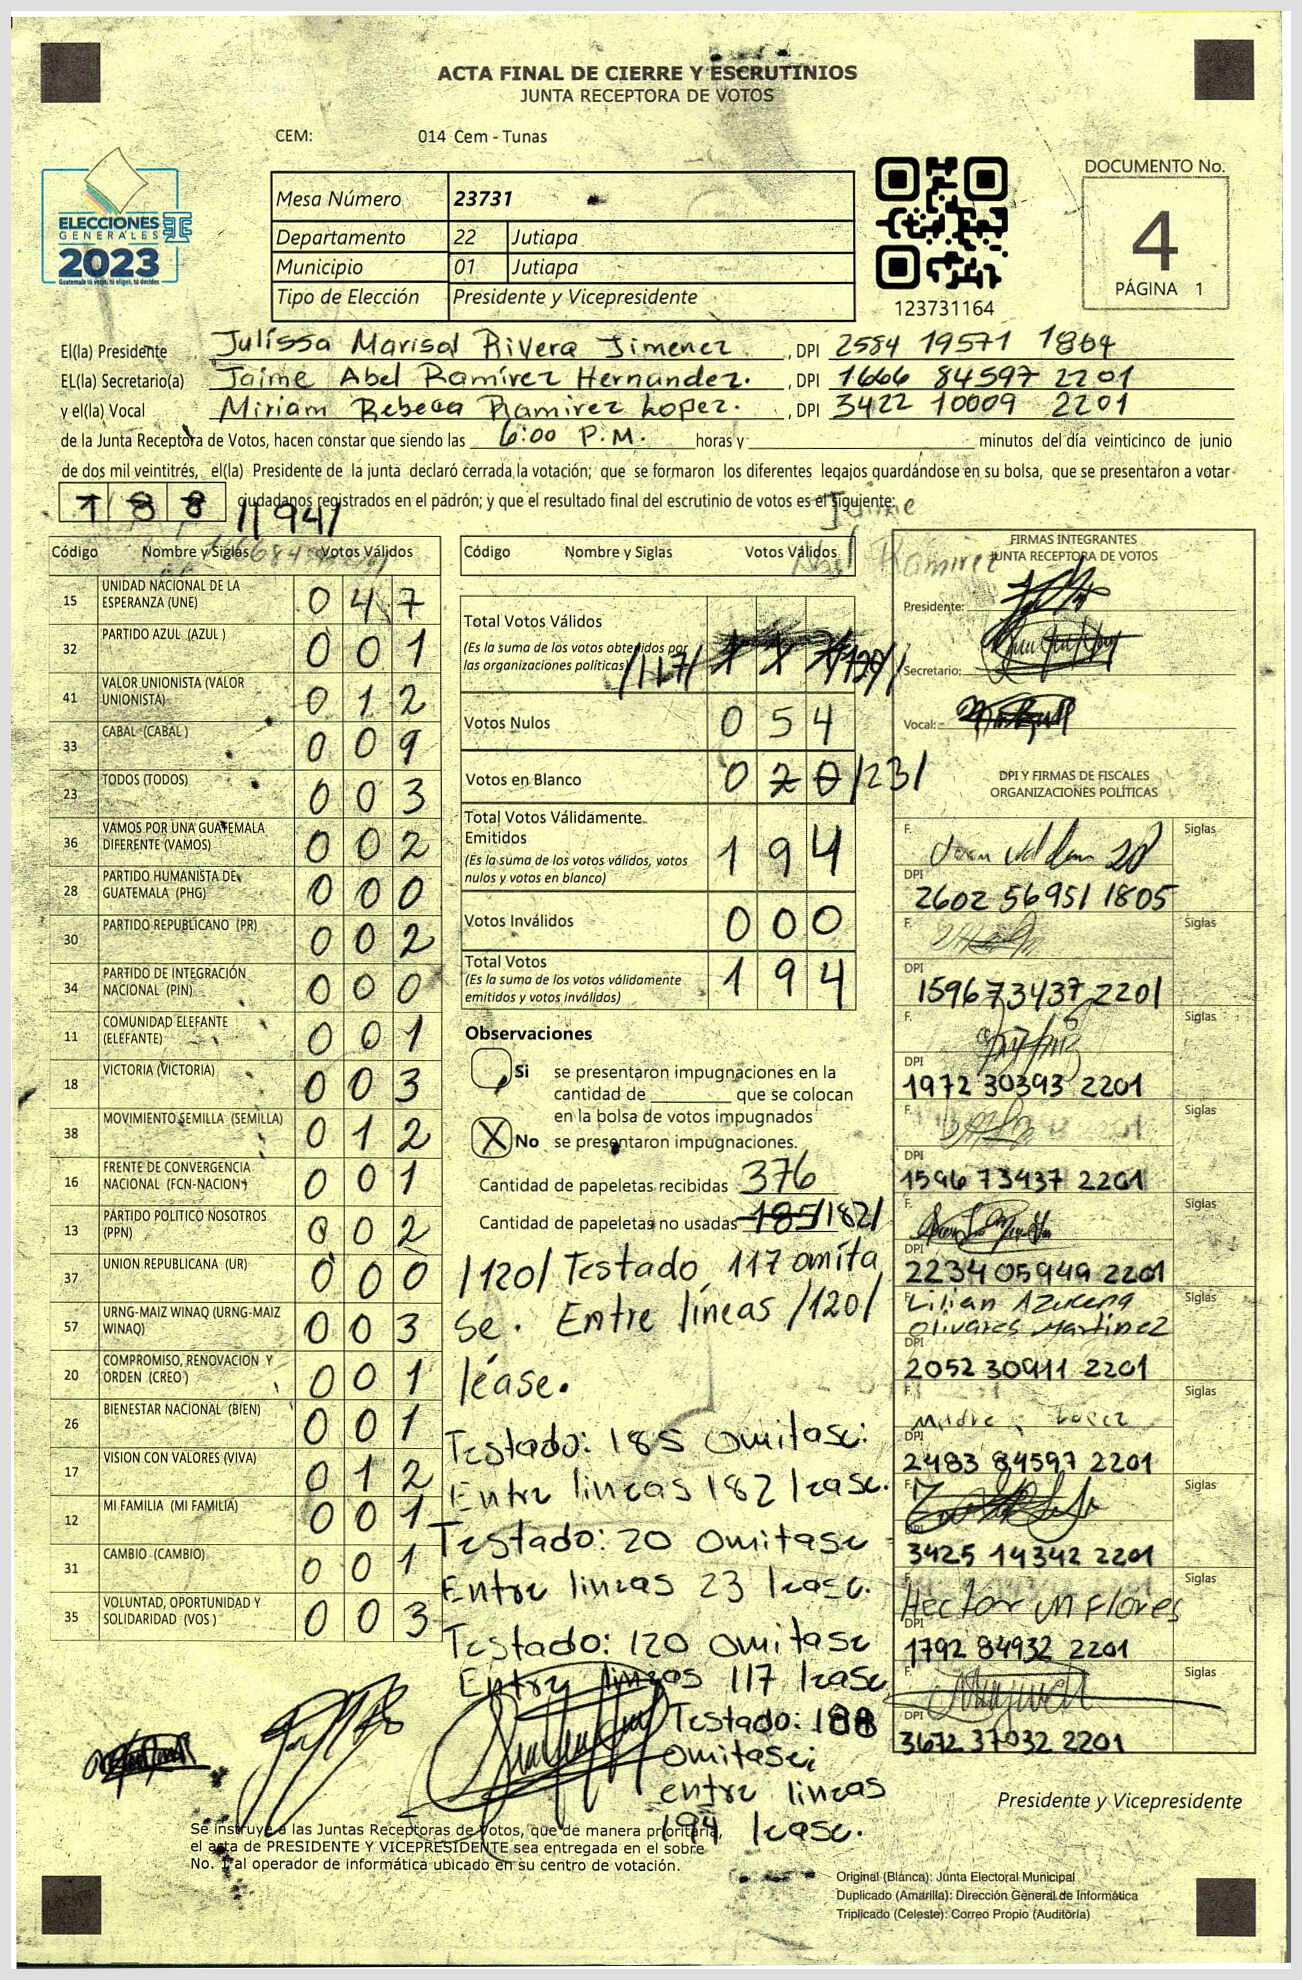 ACTA FINAL DE CIERRE Y ESCRUTINIOS
JUNTA RECEPTORA DE VOTOS
CEM: 014 Cem - Tunas
ELECCIONES
GENERALES
2023
Guatemala tú vales, tú eliges, tú decides
Mesa Número 23731
Departamento 22 Jutiapa
Municipio 01 Jutiapa
Tipo de Elección Presidente y Vicepresidente
123731164
DOCUMENTO No.
4
PÁGINA 1
El(la) Presidente Julissa Marisol Rivera Jimenez , DPI 2584 19571 1804
EL(la) Secretario(a) Jaime Abel Ramírez Hernández. , DPI 1666 84597 2201
y el(la) Vocal Miriam Rebeca Ramirez Lopez. , DPI 3422 10009 2201
de la Junta Receptora de Votos, hacen constar que siendo las 6:00 P.M. horas y minutos del día veinticinco de junio
de dos mil veintitrés, el(la) Presidente de la junta declaró cerrada la votación; que se formaron los diferentes legajos guardándose en su bolsa, que se presentaron a votar
188 /194/ ciudadanos registrados en el padrón; y que el resultado final del escrutinio de votos es el siguiente:
Jaime
Ramirez
Código Nombre y Siglas Votos Válidos
15 UNIDAD NACIONAL DE LA ESPERANZA (UNE) 0 4 7
32 PARTIDO AZUL (AZUL ) 0 0 1
41 VALOR UNIONISTA (VALOR UNIONISTA) 0 1 2
33 CABAL (CABAL ) 0 0 9
23 TODOS (TODOS) 0 0 3
36 VAMOS POR UNA GUATEMALA DIFERENTE (VAMOS) 0 0 2
28 PARTIDO HUMANISTA DE GUATEMALA (PHG) 0 0 0
30 PARTIDO REPUBLICANO (PR) 0 0 2
34 PARTIDO DE INTEGRACIÓN NACIONAL (PIN) 0 0 0
11 COMUNIDAD ELEFANTE (ELEFANTE) 0 0 1
18 VICTORIA (VICTORIA) 0 0 3
38 MOVIMIENTO SEMILLA (SEMILLA) 0 1 2
16 FRENTE DE CONVERGENCIA NACIONAL (FCN-NACION) 0 0 1
13 PARTIDO POLITICO NOSOTROS (PPN) 0 0 2
37 UNION REPUBLICANA (UR) 0 0 0
57 URNG-MAIZ WINAQ (URNG-MAIZ WINAQ) 0 0 3
20 COMPROMISO, RENOVACION Y ORDEN (CREO ) 0 0 1
26 BIENESTAR NACIONAL (BIEN) 0 0 1
17 VISION CON VALORES (VIVA) 0 1 2
12 MI FAMILIA (MI FAMILIA) 0 0 1
31 CAMBIO (CAMBIO) 0 0 1
35 VOLUNTAD, OPORTUNIDAD Y SOLIDARIDAD (VOS ) 0 0 3
Código Nombre y Siglas Votos Válidos
Total Votos Válidos
(Es la suma de los votos obtenidos por
las organizaciones políticas) /117/ /120/
Votos Nulos 0 5 4
Votos en Blanco 0 2 0 /23/
Total Votos Válidamente
Emitidos 1 9 4
(Es la suma de los votos válidos, votos
nulos y votos en blanco)
Votos Inválidos 0 0 0
Total Votos 1 9 4
(Es la suma de los votos válidamente
emitidos y votos inválidos)
Observaciones
Si se presentaron impugnaciones en la
cantidad de que se colocan
en la bolsa de votos impugnados
X No se presentaron impugnaciones.
Cantidad de papeletas recibidas 376
Cantidad de papeletas no usadas 185 /182/
/120/ Testado, 117 omíta
se. Entre líneas /120/
léase.
Testado: 185 omitase:
Entre lineas 182 lease.
Testado: 20 omitase
Entre lineas 23 lease.
Testado: 120 omitase
Entre lineas 117 lease
Testado: 188
omitase;
entre lineas
194 lease.
FIRMAS INTEGRANTES
JUNTA RECEPTORA DE VOTOS
Presidente:
Secretario:
Vocal:
DPI Y FIRMAS DE FISCALES
ORGANIZACIONES POLÍTICAS
F. Siglas
DPI 2602 56951 1805
F. Siglas
DPI 1596 73437 2201
F. Siglas
DPI 1972 30393 2201
F. Siglas
DPI 1596 73437 2201
F. Siglas
DPI 2234 05949 2201
F. Lilian Azucena Siglas
Olivares Martinez
DPI 2052 30911 2201
F. Lopez Siglas
DPI 2483 84597 2201
F. Siglas
DPI 3425 14342 2201
F. Hector M Flores Siglas
DPI 1792 84932 2201
F. Siglas
DPI 3672 37032 2201
Presidente y Vicepresidente
Se instruye a las Juntas Receptoras de Votos, que de manera prioritaria,
el acta de PRESIDENTE Y VICEPRESIDENTE sea entregada en el sobre
No. 1 al operador de informática ubicado en su centro de votación.
Original (Blanca): Junta Electoral Municipal
Duplicado (Amarilla): Dirección General de Informática
Triplicado (Celeste): Correo Propio (Auditoría)